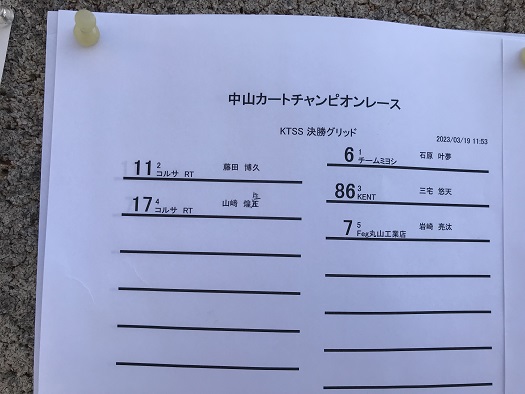 中山カートチャンピオンレース
KTSS 決勝グリッド
2023/03/19 11:53
6 1 チームミヨシ 石原 叶夢
11 2 コルサ RT 藤田 博久
86 3 KENT 三宅 悠天
17 4 コルサ RT 山﨑
7 5 Feg丸山工業店 岩崎 亮汰